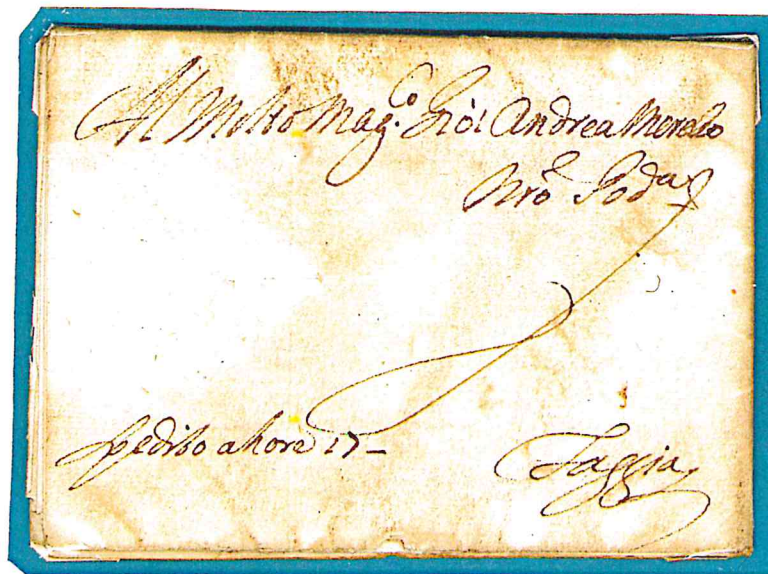 Al Molto Mag.co Gio: Andrea Morato
Nro Pod.a
spedito a hore 17 -
Taggia